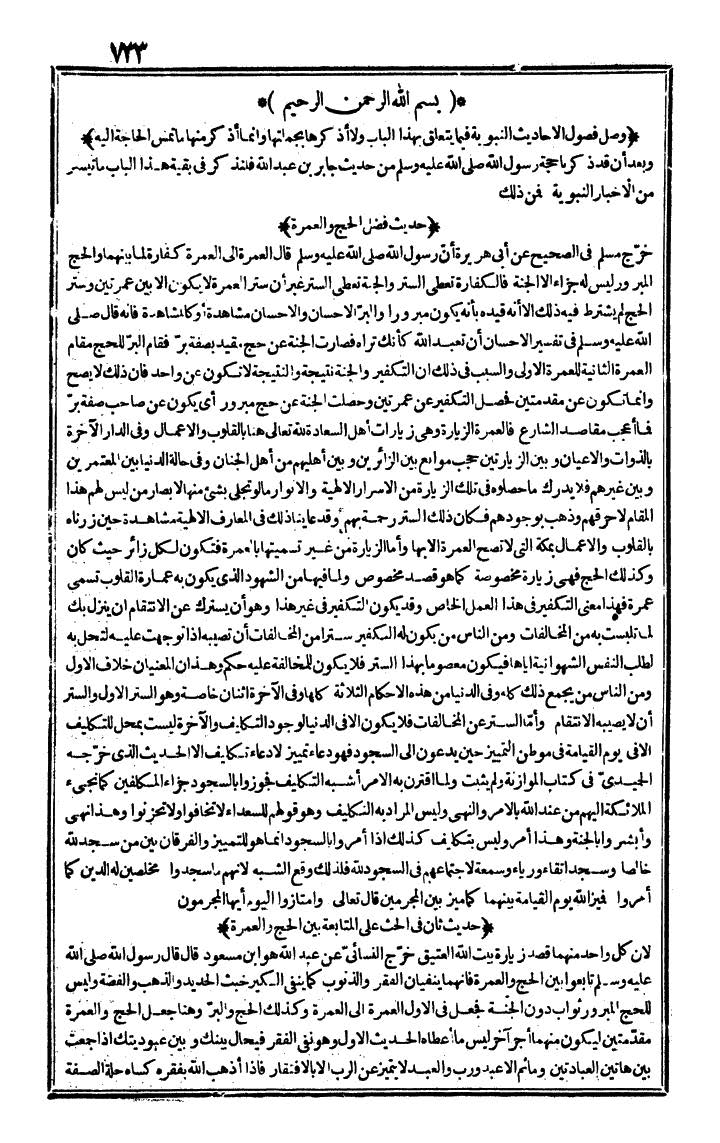 ٧٣٣
*( بسم الله الرحمن الرحيم )*
﴿وصل فصول الاحاديث النبوية فيما يتعلق بهذا الباب ولا أذكرها بجملتها وانما أذكر منها ما تمس الحاجة اليه﴾
وبعد أن قد ذكرنا حجة رسول الله صلى الله عليه وسلم من حديث جابر بن عبد الله فلنذكر فى بقية هذا الباب ما تيسر
من الاخبار النبوية فمن ذلك
﴿حديث فضل الحج والعمرة﴾
خرّج مسلم فى الصحيح عن أبى هريرة أنّ رسول الله صلى الله عليه وسلم قال العمرة الى العمرة كفارة لما بينهما والحج
المبرور ليس له جزاء الا الجنة فالكفارة تعطى الستر والجنة تعطى الستر غير أن ستر العمرة لا يكون الا بين عمرتين وستر
الحج لم يشترط فيه ذلك الا أنه قيده بأنه يكون مبرورا والبرّ الاحسان والاحسان مشاهدة أو كالمشاهدة فانه قال صلى
الله عليه وسلم فى تفسير الاحسان أن تعبد الله كأنك تراه فصارت الجنة عن حج مقيد بصفة برّ فقام البرّ للحج مقام
العمرة الثانية للعمرة الاولى والسبب فى ذلك ان التكفير والجنة نتيجة والنتيجة لا تكون عن واحد فان ذلك لا يصح
وانما تكون عن مقدمتين فحصل التكفير عن عمرتين وحصلت الجنة عن حج مبرور أى يكون عن صاحب صفة برّ
فما أعجب مقاصد الشارع فالعمرة الزيارة وهى زيارات أهل السعادة لله تعالى هنا بالقلوب والاعمال وفى الدار الآخرة
بالذوات والاعيان وبين الزيارتين حجب موانع بين الزائرين وبين أهليهم من أهل الجنان وفى حالة الدنيا بين المعتمرين
وبين غيرهم فلا يدرك ما حصلوه فى تلك الزيارة من الاسرار الالهية والانوار ما لو تجلى بشئ منها لابصار من ليس لهم هذا
المقام لاحرقهم وذهب بوجودهم فكان ذلك الستر رحمة بهم وقد عاينا ذلك فى المعارف الالهية مشاهدة حين زرناه
بالقلوب والاعمال بمكة التى لا تصح العمرة الا بها وأما الزيارة من غير تسميتها بالعمرة فتكون لكل زائر حيث كان
وكذلك الحج فهى زيارة مخصوصة كما هو قصد مخصوص ولما فيها من الشهود الذى يكون به عمارة القلوب تسمى
عمرة فهذا معنى التكفير فى هذا العمل الخاص وقد يكون التكفير فى غير هذا وهو أن يسترك عن الانتقام ان ينزل بك
لما تلبست به من المخالفات ومن الناس من يكون له التكفير سترا من المخالفات أن تصيبه اذا توجهت عليه لتحل به
لطلب النفس الشهوانية اياها فيكون معصوما بهذا الستر فلا يكون للمخالفة عليه حكم وهذان المعنيان خلاف الاول
ومن الناس من يجمع ذلك كله وفى الدنيا من هذه الاحكام الثلاثة كلها وفى الآخرة اثنان خاصة وهو الستر الاول والستر
أن لا يصيبه الانتقام وأمّا الستر عن المخالفات فلا يكون الا فى الدنيا لوجود التكليف والآخرة ليست بمحل للتكليف
الا فى يوم القيامة فى موطن التمييز حين يدعون الى السجود فهو دعاء تمييز لا دعاء تكليف الا الحديث الذى خرّجه
الحميدىّ فى كتاب الموازنة ولم يثبت ولما اقترن به الامر أشبه التكليف فجوزوا بالسجود جزاء المكلفين كما تجىء
الملائكة اليهم من عند الله بالامر والنهى وليس المراد به التكليف وهو قولهم للسعداء لا تخافوا ولا تحزنوا وهذا نهى
وأبشروا بالجنة وهذا أمر وليس بتكليف كذلك اذا أمروا بالسجود انما هو للتمييز والفرقان بين من سجد لله
خالصا وسجد اتقاء ورياء وسمعة لاجتماعهم فى السجود لله فلذلك وقع الشبه لانهم ما سجدوا مخلصين له الدين كما
أمروا فميز الله يوم القيامة بينهما كما ميز بين المجرمين قال تعالى وامتازوا اليوم أيها المجرمون
﴿حديث ثان فى الحث على المتابعة بين الحج والعمرة﴾
لان كل واحد منهما قصد زيارة بيت الله العتيق خرّج النسائىّ عن عبد الله هو ابن مسعود قال قال رسول الله صلى الله
عليه وسلم تابعوا بين الحج والعمرة فانهما ينفيان الفقر والذنوب كما ينفى الكير خبث الحديد والذهب والفضة وليس
للحج المبرور ثواب دون الجنة فجعل فى الاول العمرة الى العمرة وكذلك الحج والبرّ وهنا جعل الحج والعمرة
مقدّمتين ليكون منهما أجر آخر ليس ما أعطاه الحديث الاول وهو نفى الفقر فيحال بينك وبين عبوديتك اذا جمعت
بين هاتين العبادتين وما ثم الا عبد ورب والعبد لا يتميز عن الرب الا بالافتقار فاذا أذهب الله بفقره كساه حلة الصفة